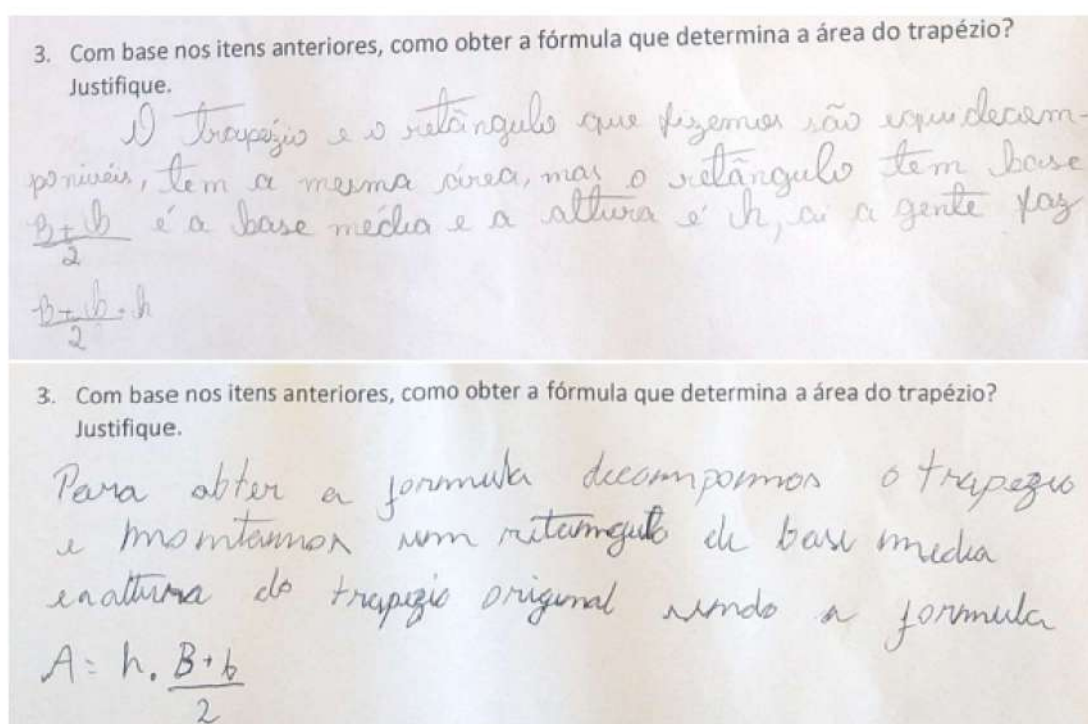 3. Com base nos itens anteriores, como obter a fórmula que determina a área do trapézio?
Justifique.
O trapézio e o retângulo que fizemos são equidecom-
poniveis, tem a mesma área, mas o retângulo tem base
B+b/2 é a base média e a altura é h, ai a gente faz
B+b/2 . h
3. Com base nos itens anteriores, como obter a fórmula que determina a área do trapézio?
Justifique.
Para obter a formula decompomos o trapezio
e montamos um retangulo de base media
e a altura do trapezio original sendo a formula
A = h . B+b/2